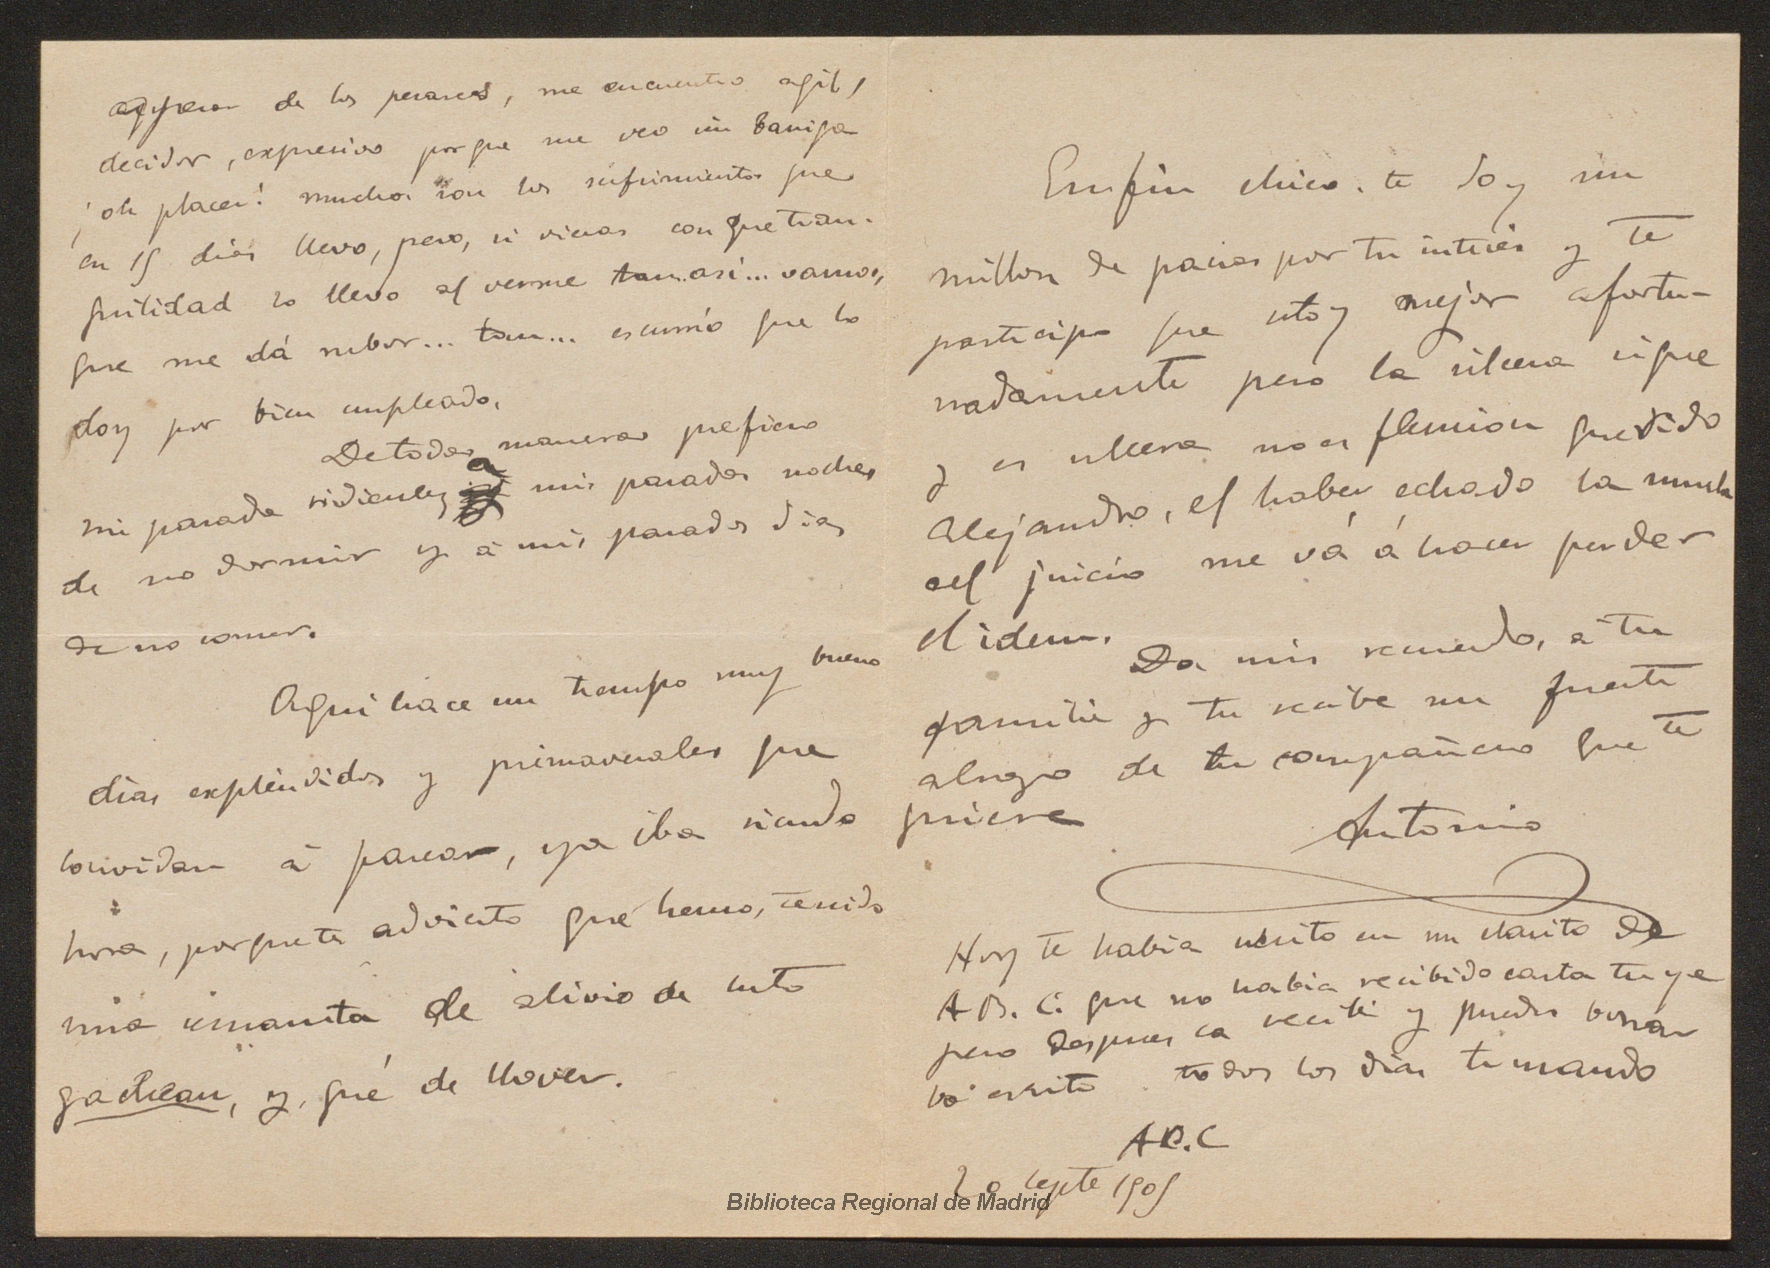 de los pesares, me encuentro agil,
decidor, expresivo porque me veo sin barriga
¡oh placer! muchos son los sufrimientos que
en 15 dias llevo, pero, si vieras con que tran-
quilidad lo llevo al verme tan así... vamos,
que me dá rubor... tan... escurrío que lo
doy por bien empleado.
De todas maneras prefiero
mi pasada ridiculez a mis pasadas noches
de no dormir y á mis pasados dias
de no comer.
Aqui hace un tiempo muy bueno
dias expléndidos y primaverales que
convidan á pasear, ya iba siendo
hora, porque te advierto que hemos tenido
una semanita de alivio de luto
gachean, y, qué de llover.
Enfin chico, te doy un
millon de gracias por tu interés y te
participo que estoy mejor afortu-
nadamente pero la ulcera sigue
y es ulcera no es flemion querido
Alejandro, el haber echado la muela
del juicio me vá á hacer perder
el idem.
Da mis recuerdos, á tu
familia y tu recibe un fuerte
abrazo de tu compañero que te
quiere
Antonio
Hoy te habia escrito en un clarito de
A B. C. que no habia recibido carta tuya
pero despues la recibí y puedes borrar
lo escrito todos los dias te mando
A B. C
20 Septe 1905
Biblioteca Regional de Madrid